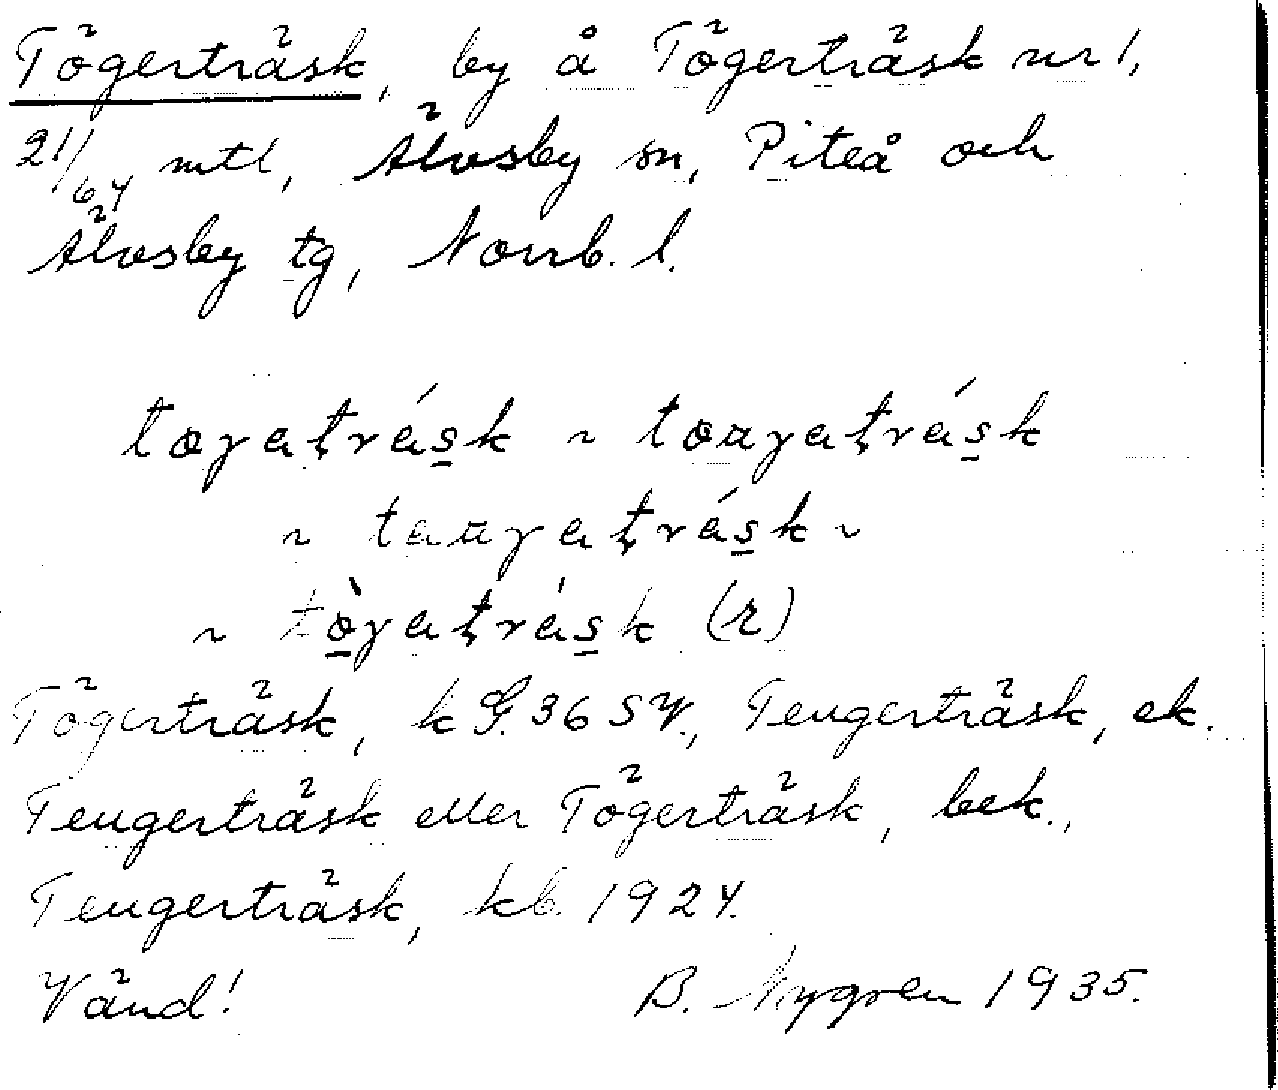 Tögerträsk, by å Tögerträsk nr 1,
21/64 mtl, Älvsby sn, Piteå och
Älvsby tg, Norrb. l.
toγaţrásk ~ toαγaţrásk
~ taαγaţrásk ~
~ tòγaţrásk (r)
Tögerträsk, k G. 36 SV., Teugerträsk, ek.
Teugerträsk eller Tögerträsk, bek.,
Teugerträsk, kb. 1924.
Vänd! B. Nygren 1935.